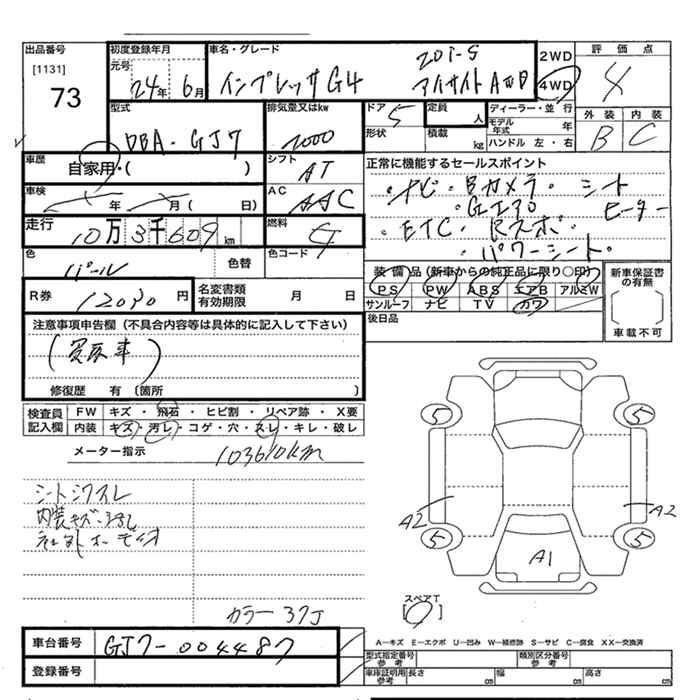 出品番号 初度登録年月 車名・グレード 評価点
[1131] 元号 2.0i-S 2WD
73 24年 6月 インプレッサG4 アイサイト AWD 4WD 4
型式 排気量又はkw ドア 定員 ディーラー・並行 外装 内装
DBA・GJ7 2000 5 人 モデル年式 年 B C
形状 積載 kg ハンドル 左・右
車歴 自家用・( ) シフト AT 正常に機能するセールスポイント
車検 年 月( 日) AC AAC ・ナビ・Bカメラ・シート
走行 10万3千609km 燃料 G ヒーター
・ETC・Rスポ・
色 パール 色替 色コード ・パワーシート・
R券 12030円 名変書類有効期限 月 日 装備品(新車からの純正品に限り〇印) 新車保証書の有無
PS PW ABS エアB アルミW
サンルーフ ナビ TV カワ
注意事項申告欄(不具合内容等は具体的に記入して下さい) 後日品 車載不可
修復歴 有(箇所 )
検査員記入欄 FW キズ・飛石・ヒビ割・リペア跡・X要
内装 キズ・汚レ・コゲ・穴・スレ・キレ・破レ
メーター指示 103610km
シートシワスレ
内装キズ・汚レ
社外オーディオ
5 5
A2 A2
5 5
A1
スペアT
カラー 37J
車台番号 GJ7-004487 A−キズ E−エクボ U−凹み W−補修跡 S−サビ C−腐食 XX−交換済
登録番号 型式指定番号参考 類別区分番号参考
車庫証明用参考 長さ cm 幅 cm 高さ cm